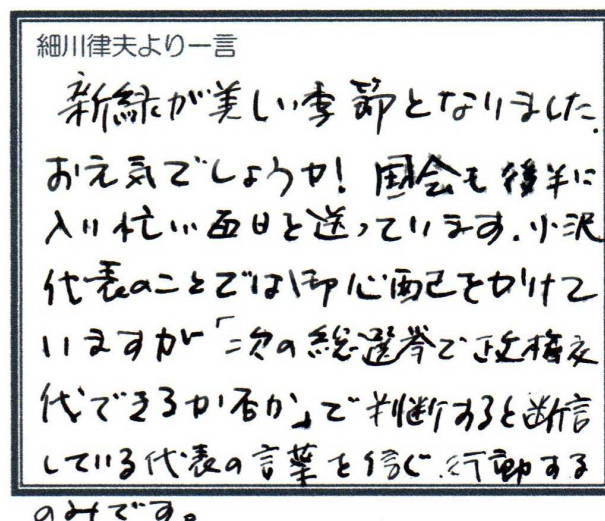 細川律夫より一言
新緑が美しい季節となりました.
お元気でしょうか! 国会も後半に
入り忙しい毎日を送っています.小沢
代表のことでは御心配をかけて
いますが「次の総選挙で政権交
代できるか否か」で判断すると断言
している代表の言葉を信じ行動する
のみです。